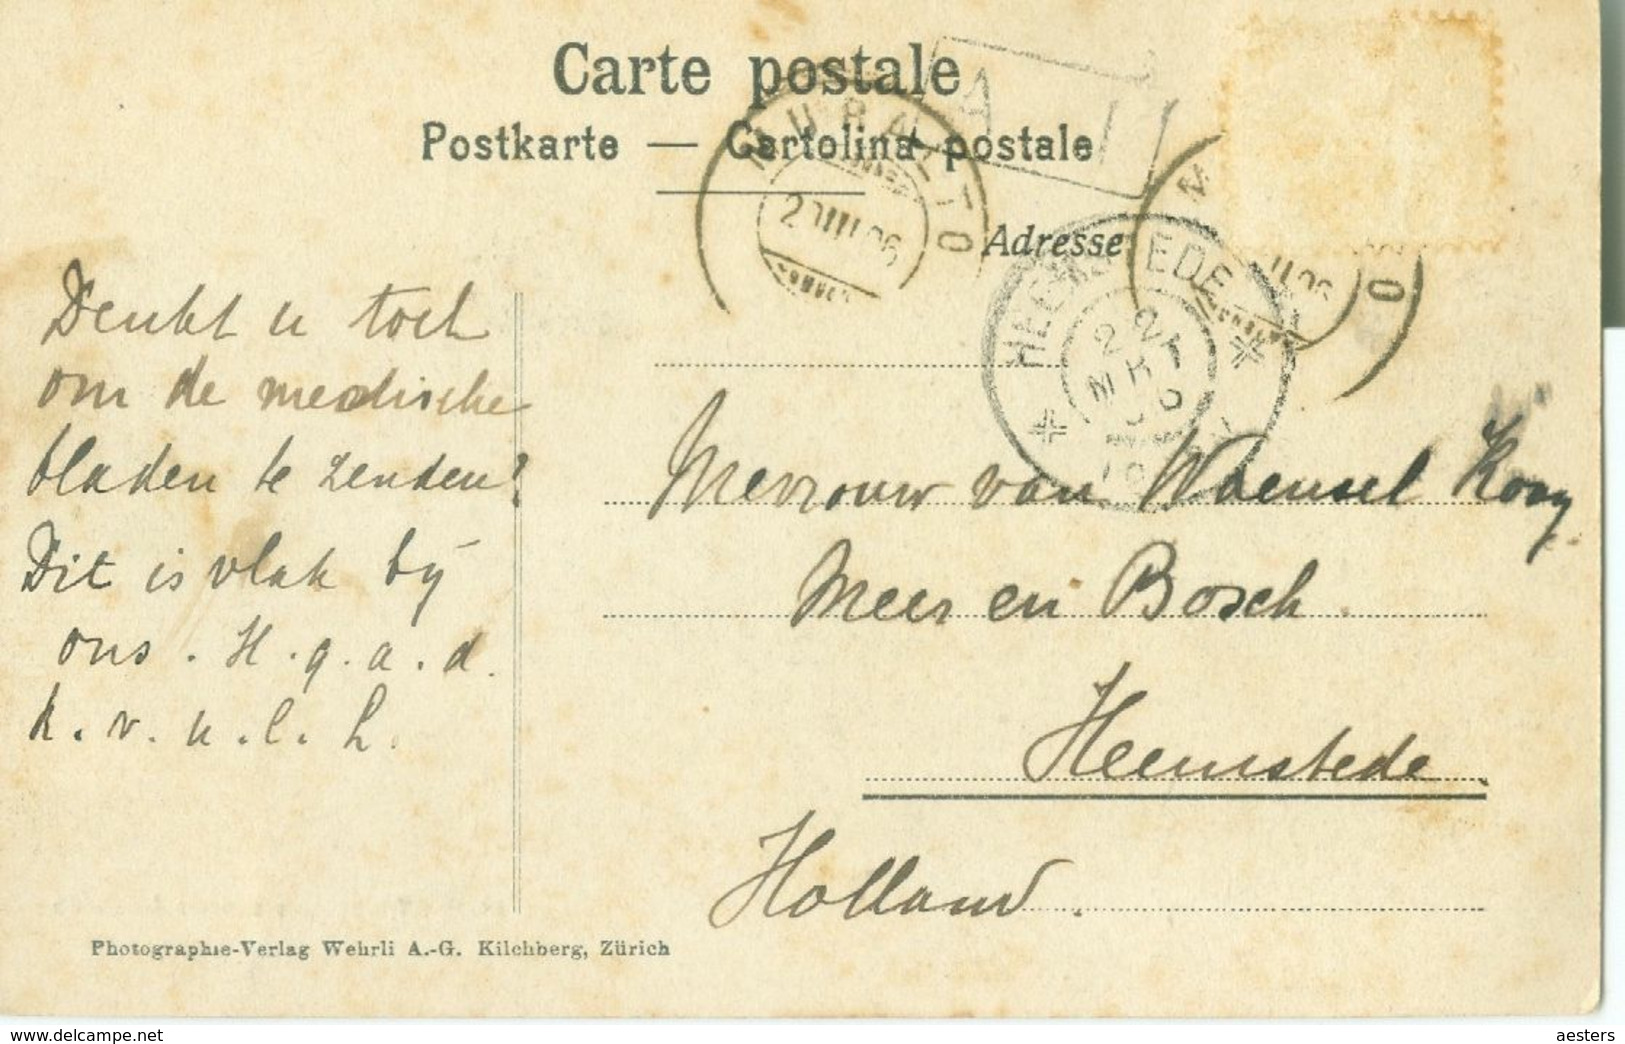 Carte postale
Postkarte — Cartolina postale
MURALTO
Adresse
HEEMSTEDE
Denkt u toch
om de medische
bladen te zenden?
Dit is vlak by
ons. H.g.a.d.
k.v.u.l.h.
Mevrouw van Waensel Kooy
Meer en Bosch.
Heemstede
Holland.
Photographie-Verlag Wehrli A.-G. Kilchberg, Zürich
www.delcampe.net
aesters